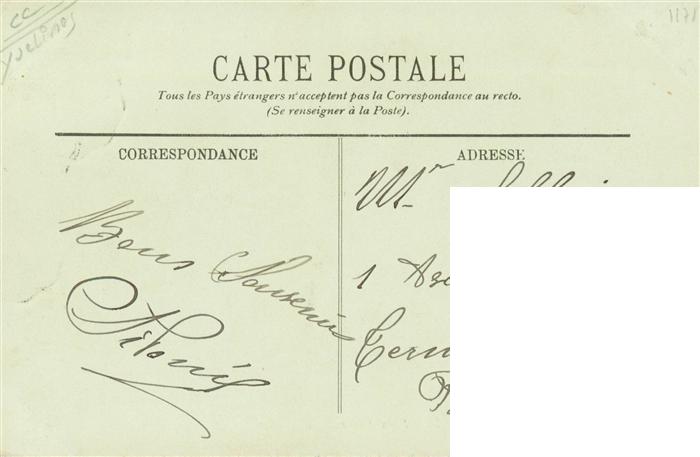 CC
Yvelines
1171
CARTE POSTALE
Tous les Pays étrangers n'acceptent pas la Correspondance au recto.
(Se renseigner à la Poste).
CORRESPONDANCE
ADRESSE
Mr
Bons Souvenirs
1